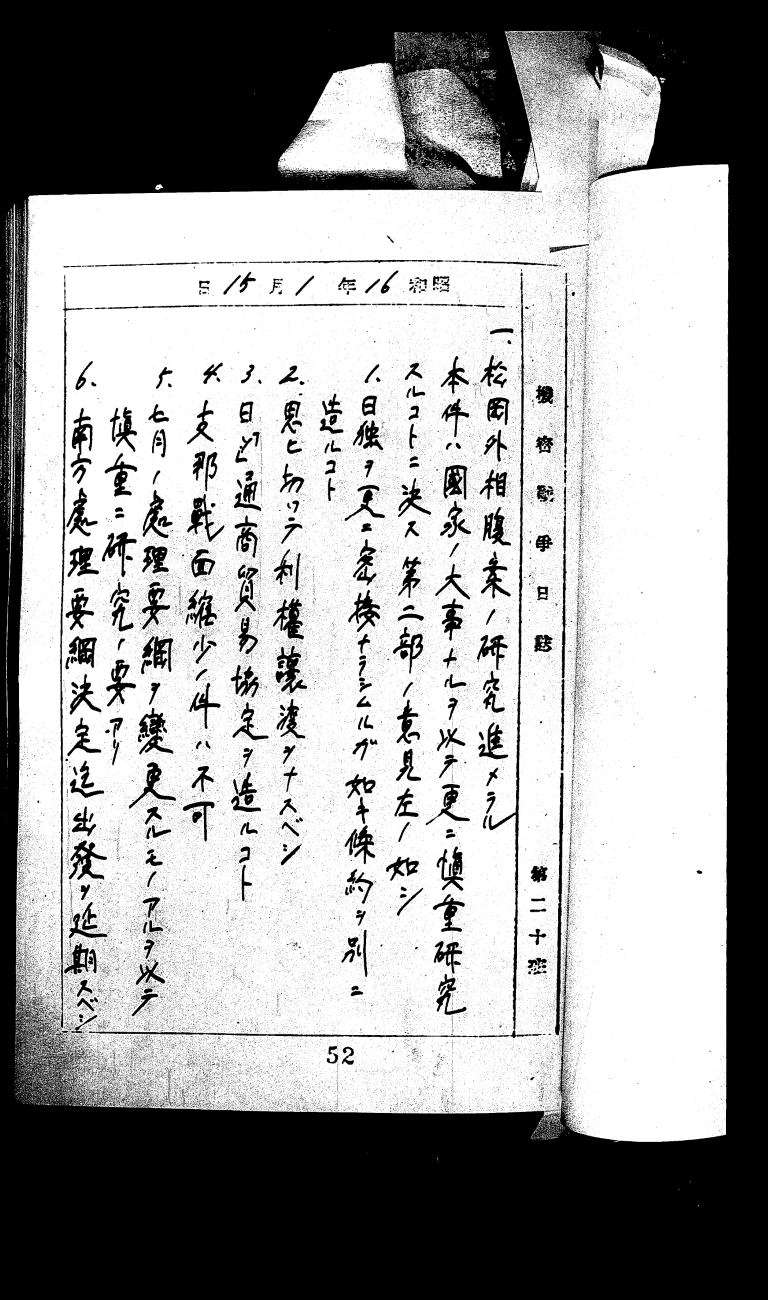 機密戰爭日誌 第二十班
昭和16年1月15日
一、松岡外相腹案ノ研究進メラル
本件ハ國家ノ大事ナルヲ以テ更ニ愼重研究
スルコトニ決ス 第二部ノ意見左ノ如シ
1. 日独ヲ更ニ密接ナラシムルガ如キ條約ヲ別ニ
造ルコト
2. 思ヒ切ツテ利權讓渡ヲナスベシ
3. 日ソ通商貿易協定ヲ造ルコト
4. 支那戰面縮少ノ件ハ不可
5. 七月ノ處理要綱ヲ變更スルモノアルヲ以テ
愼重ニ研究ノ要アリ
6. 南方處理要綱決定迄出發ヲ延期スベシ
52